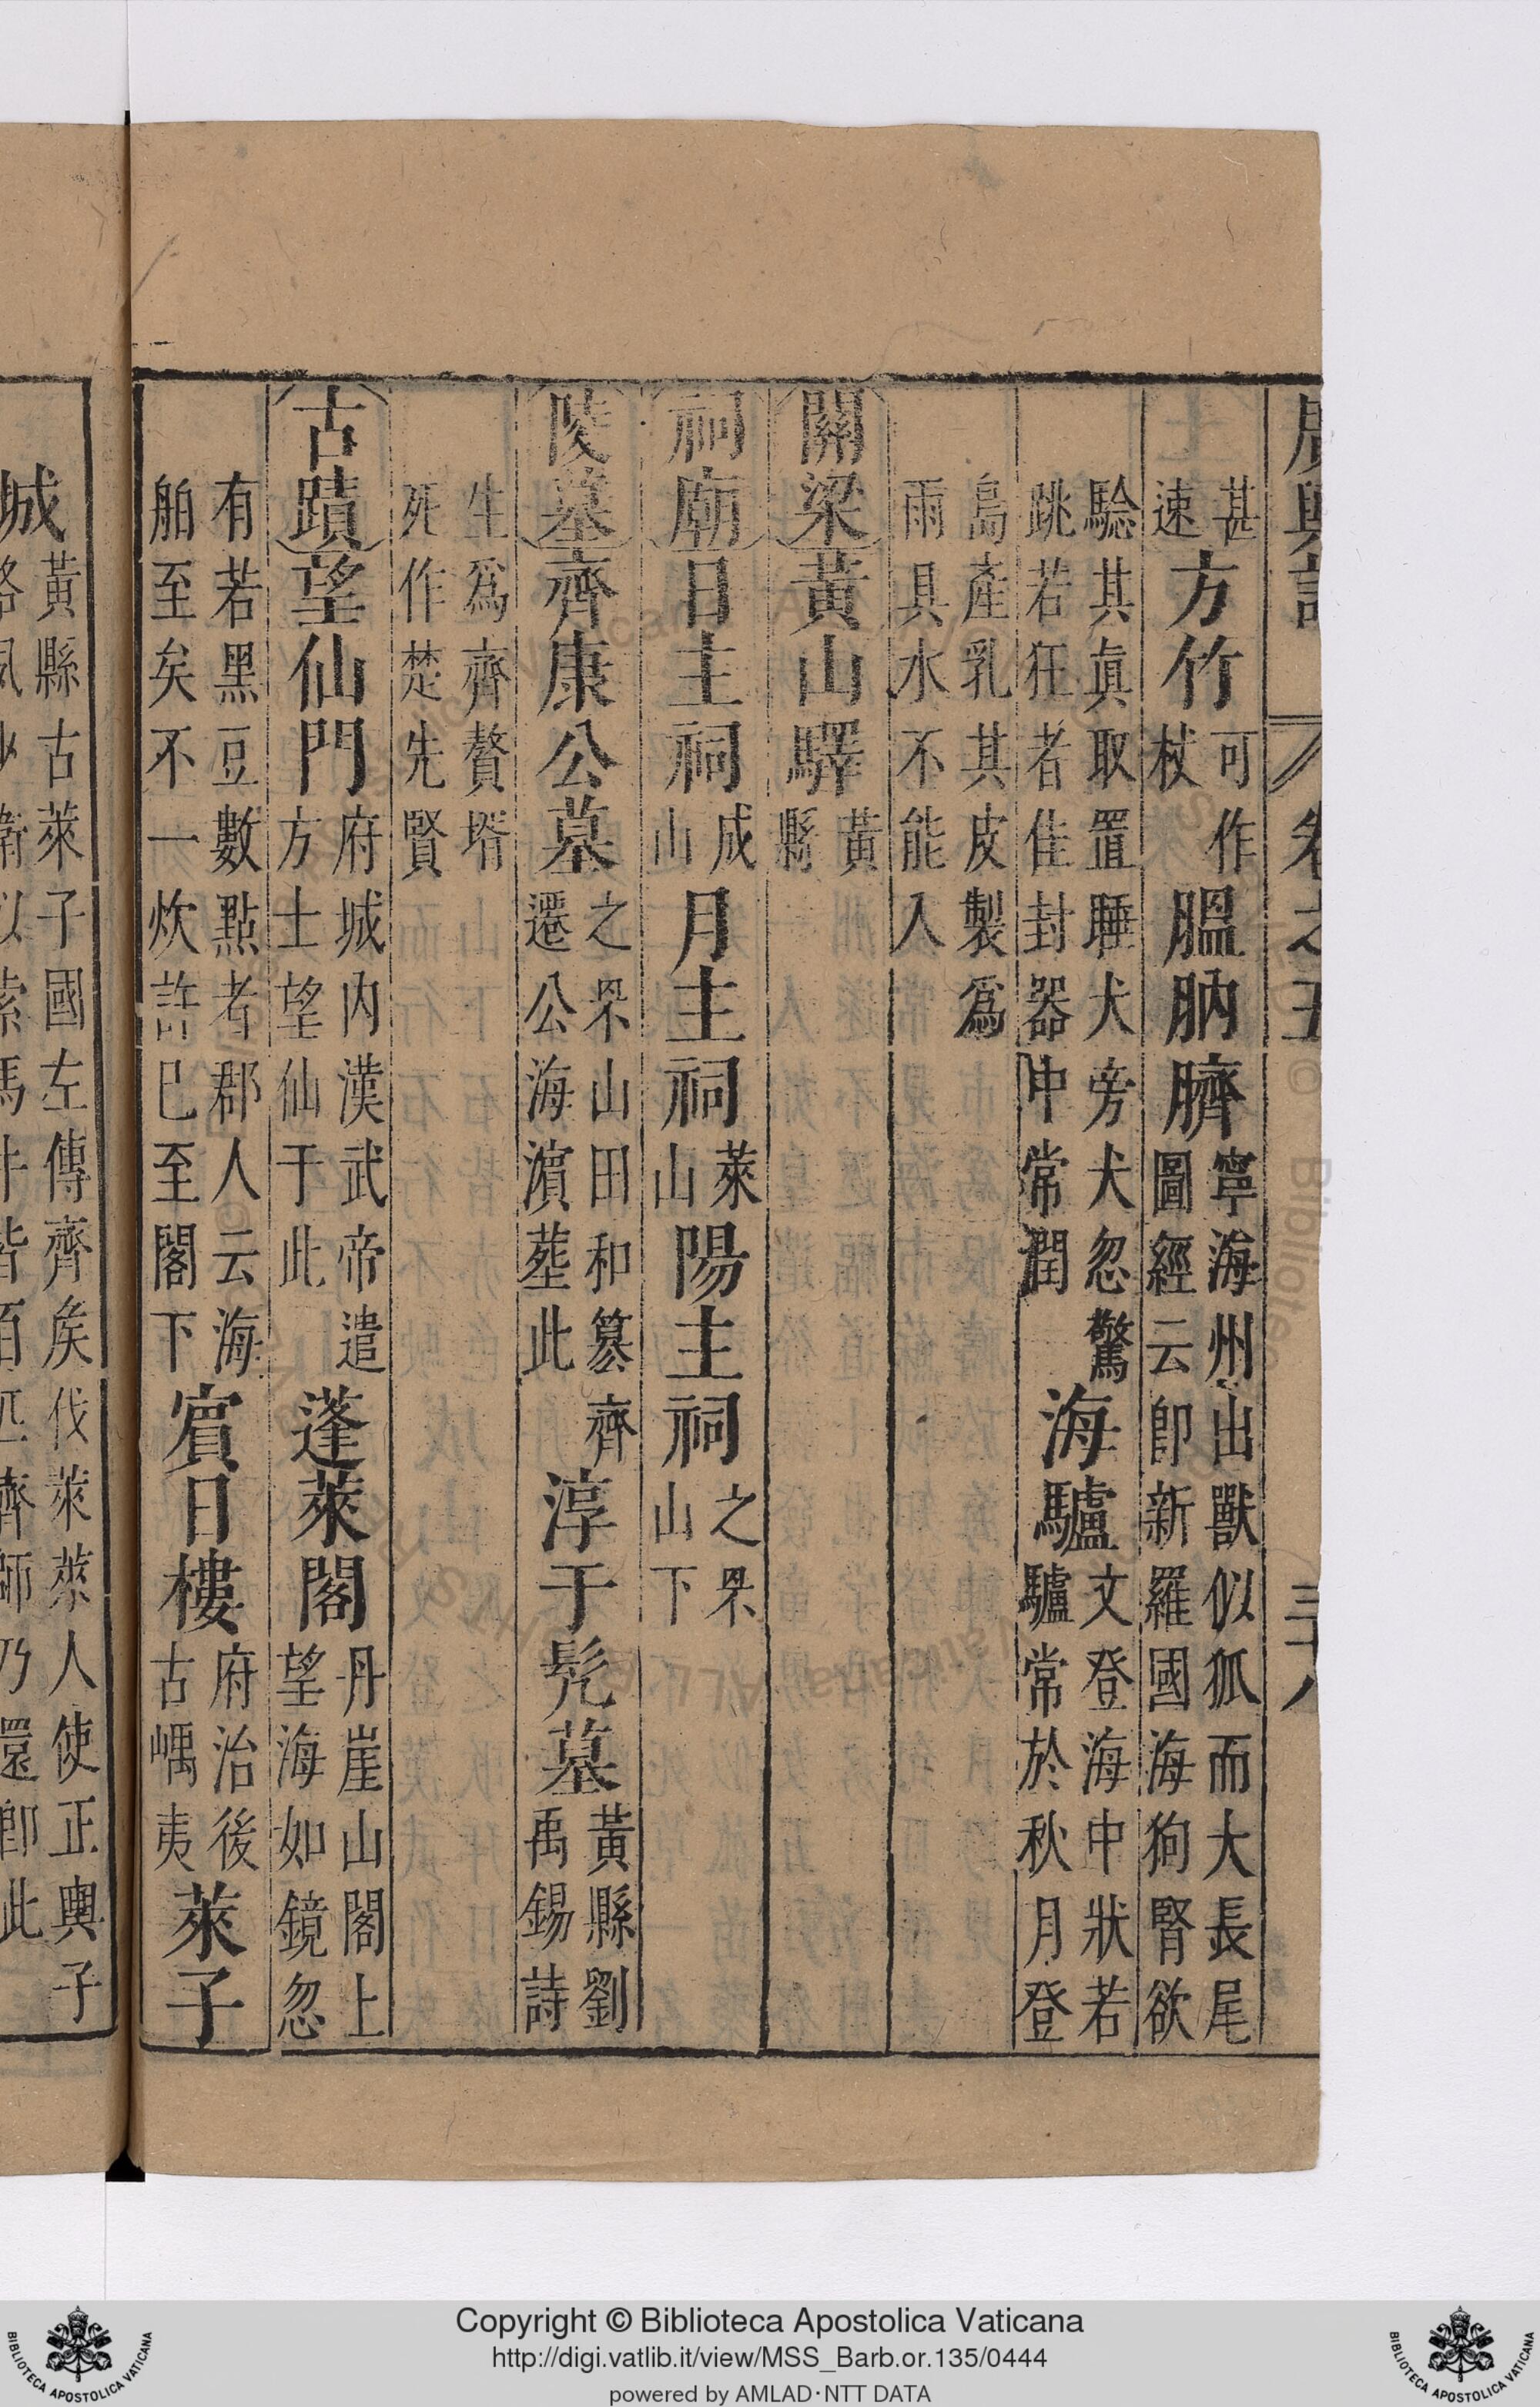 廣輿記 卷之五 三十八
甚速方竹可作杖膃肭臍寧海州出獸似狐而大長尾圖經云卽新羅國海狗腎欲
驗其眞取置睡犬旁犬忽驚跳若狂者佳封器中常潤海驢文登海中狀若驢常於秋月登
島產乳其皮製爲雨具水不能入
關梁黃山驛黃縣
祠廟日主祠成山月主祠萊山陽主祠之罘山下
陵墓齊康公墓之罘山田和篡齊遷公海濵塟此淳于髡墓黃縣劉禹錫詩
生爲齊贅壻死作楚先賢
古蹟望仙門府城内漢武帝遣方士望仙于此蓬萊閣丹崖山閣上望海如鏡忽
有若黑豆數點者郡人云海舶至矣不一炊許巳至閣下賔日樓府治後古嵎夷萊子
城黃縣古萊子國左傳齊矦伐萊萊人使正輿子
以索馬牛皆百匹齊師乃還卽此
Copyright © Biblioteca Apostolica Vaticana
http://digi.vatlib.it/view/MSS_Barb.or.135/0444
powered by AMLAD·NTT DATA
BIBLIOTECA APOSTOLICA VATICANA
BIBLIOTECA APOSTOLICA VATICANA